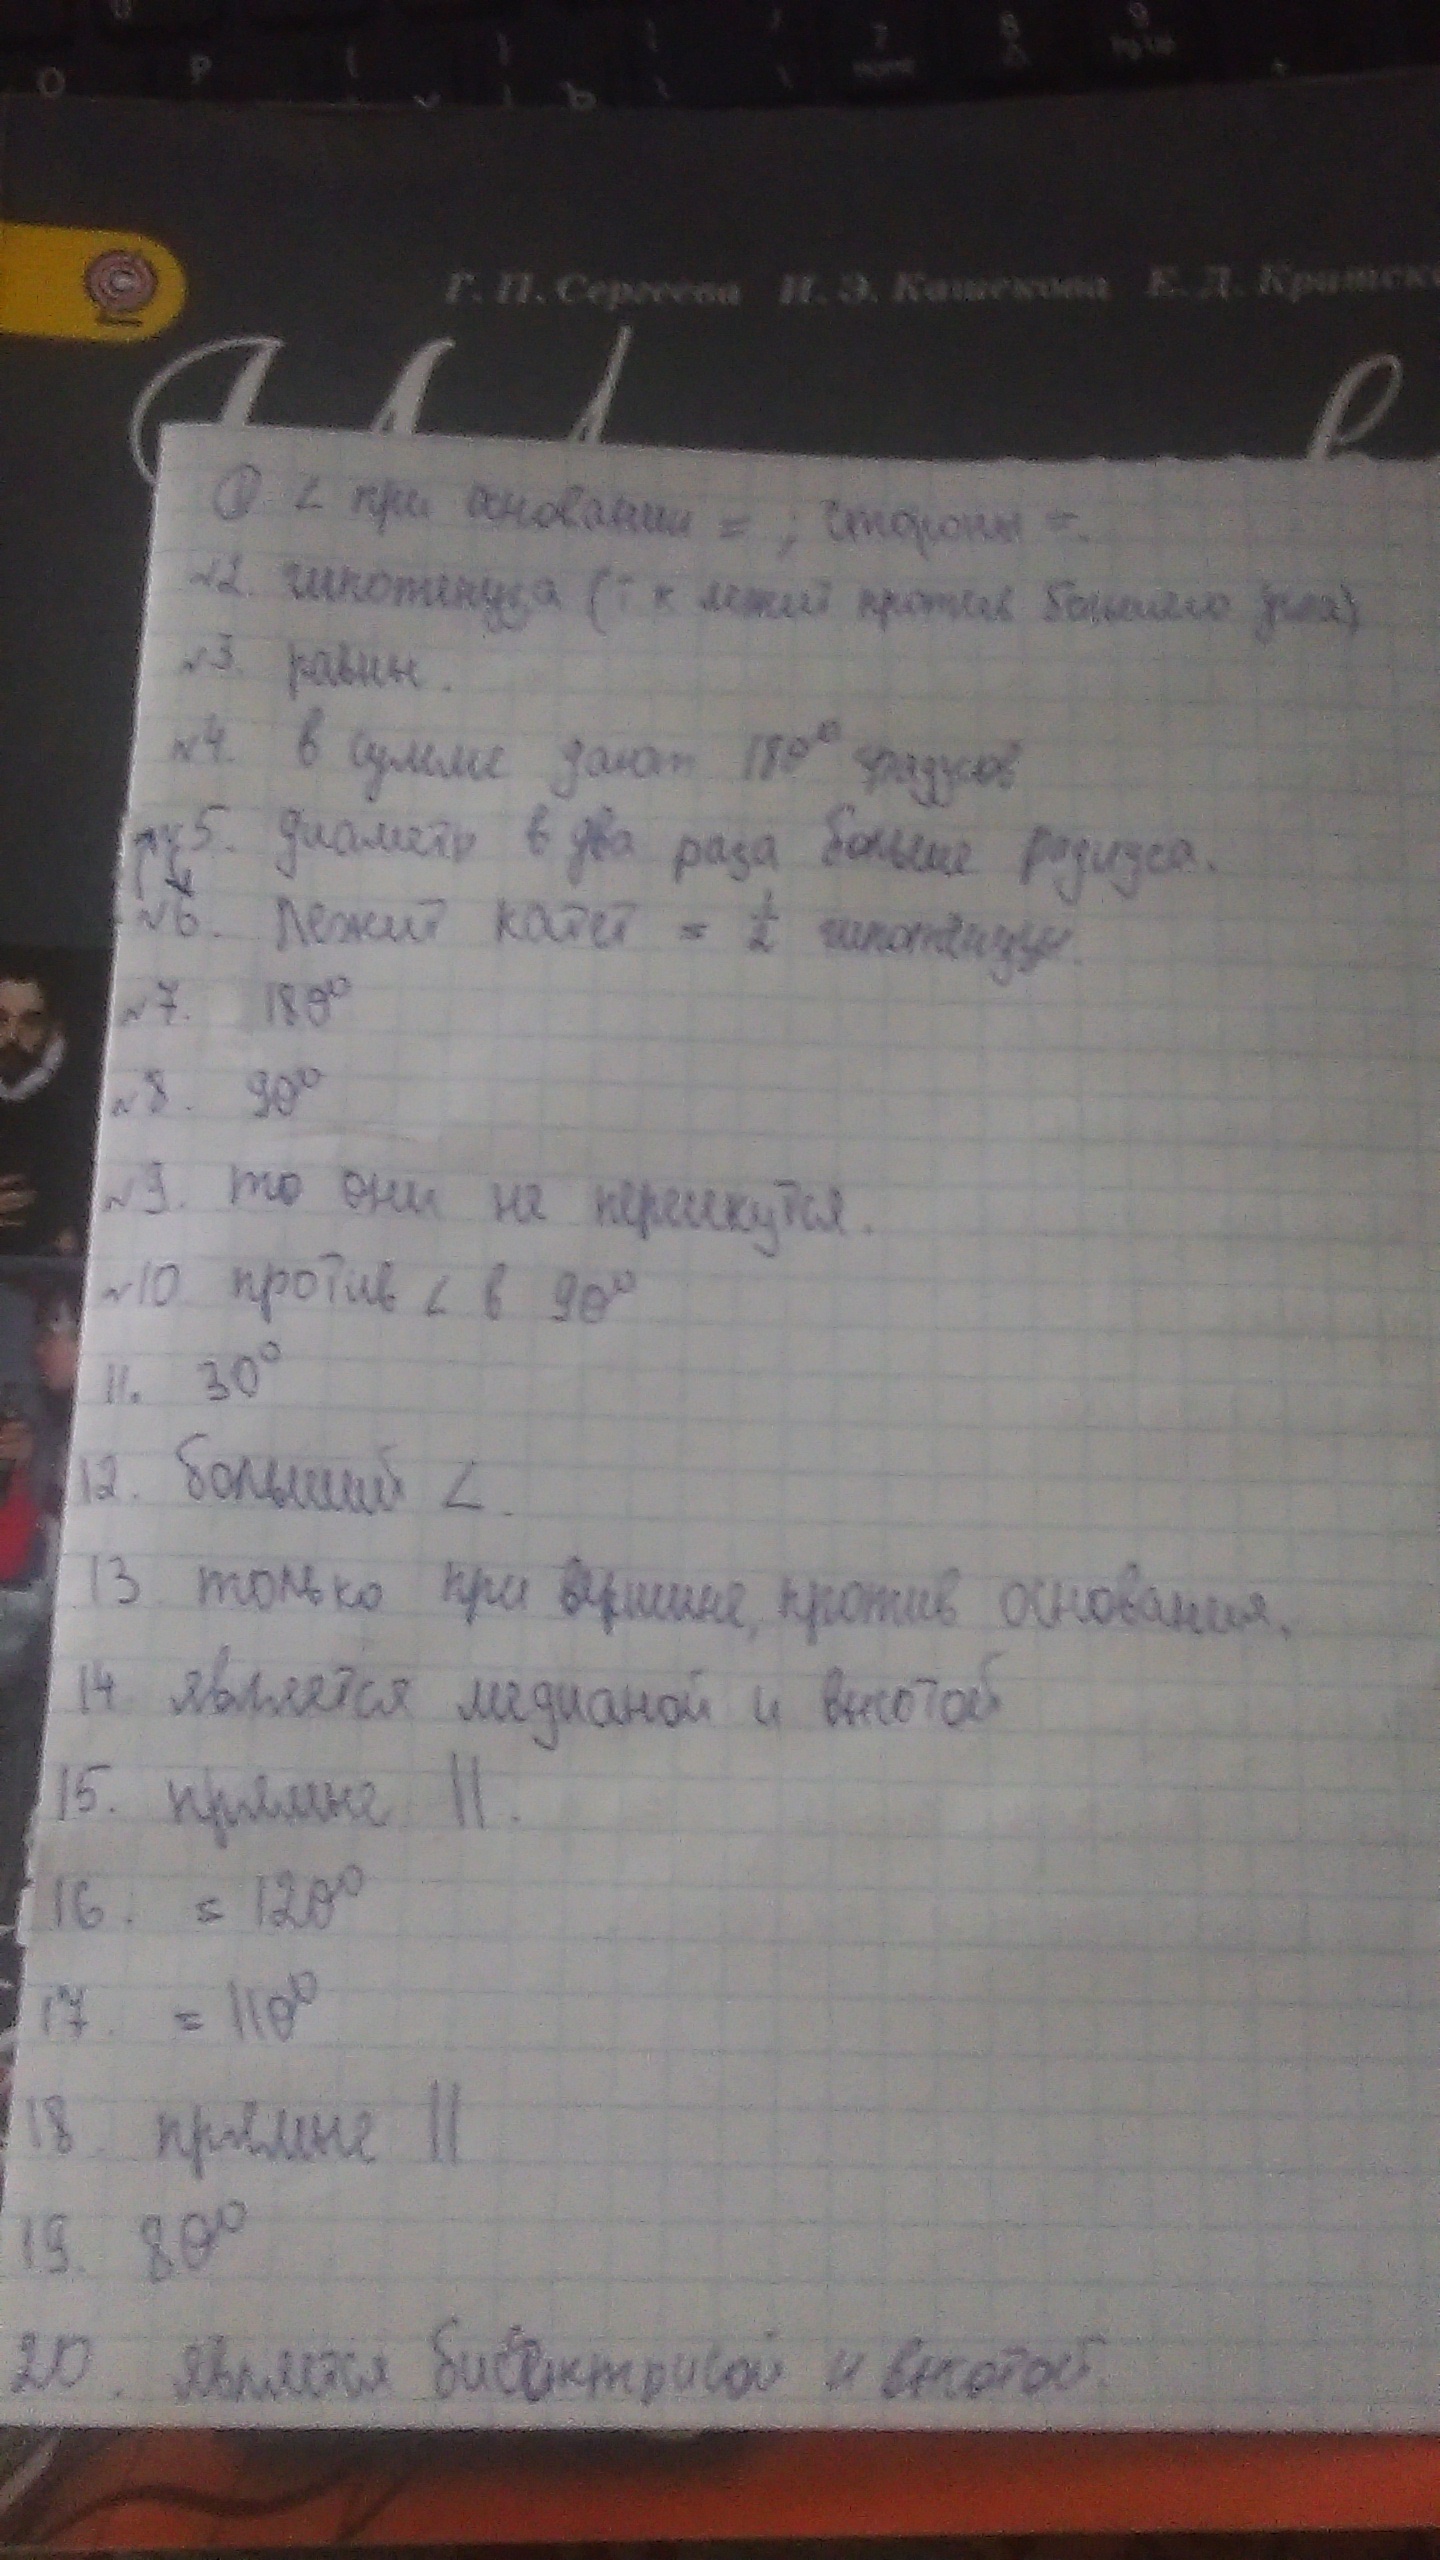 Г. П. Сергеева И. Э. Кашекова Е. Д. Критск
① ∠ при основании = ; стороны =.
№2. гипотенуза (т к лежит против большего угла)
№3. равны.
№4. в сумме дают 180° градусов
№5. диаметр в два раза больше радиуса.
№6. лежит катет = 1/2 гипотенузы.
№7. 180°
№8. 90°
№9. то они не пересекутся.
№10 против ∠ в 90°
11. 30°
12. больший ∠.
13 только при вершине, против основания.
14 является медианой и высотой
15. прямые ||.
16. = 120°
17. = 110°
18. прямые ||
19. 80°
20. является биссектрисой и высотой.